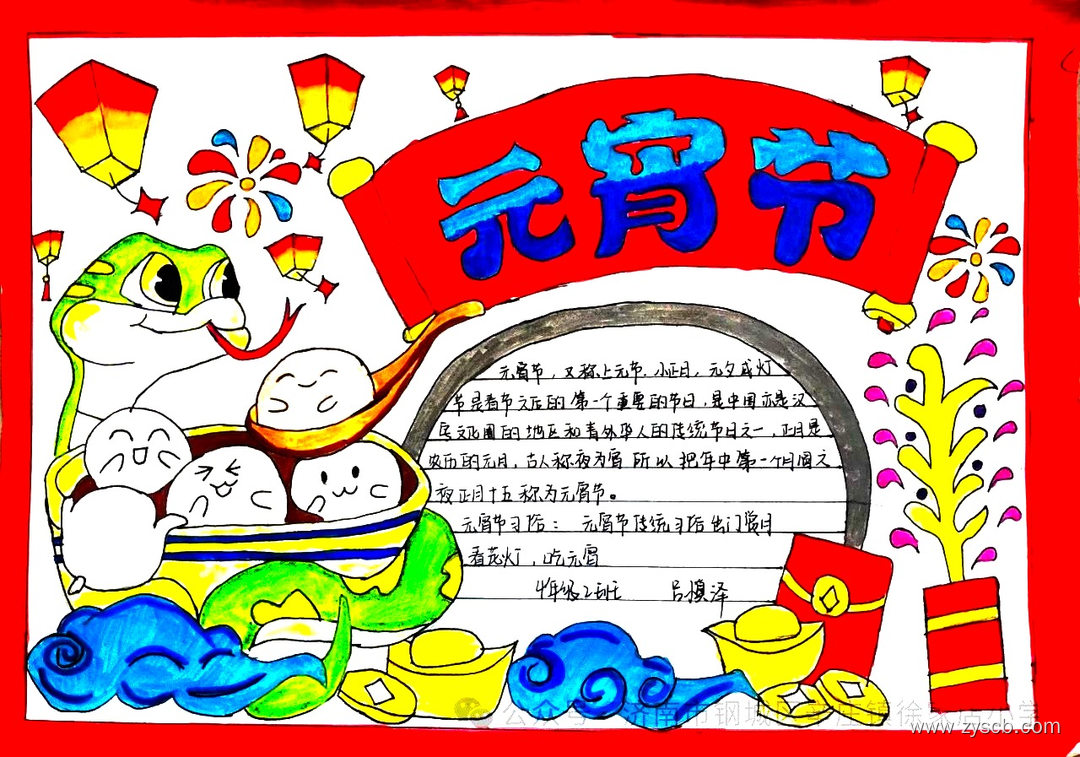 元宵节
元宵节，又称上元节，小正月，元夕或灯
节是春节之后的第一个重要的节日，是中国亦是汉
民文化圈的地区和青外华人的传统节日之一，正月是
农历的元月，古人称夜为宵所以把年中第一个月圆之
夜正月十五称为元宵节。
元宵节习俗：元宵节传统习俗出门赏月
看花灯，吃元宵
4年级2班 吕 泽
公众号·济南市钢城区辛庄镇徐家店小学
www.zyscb.com